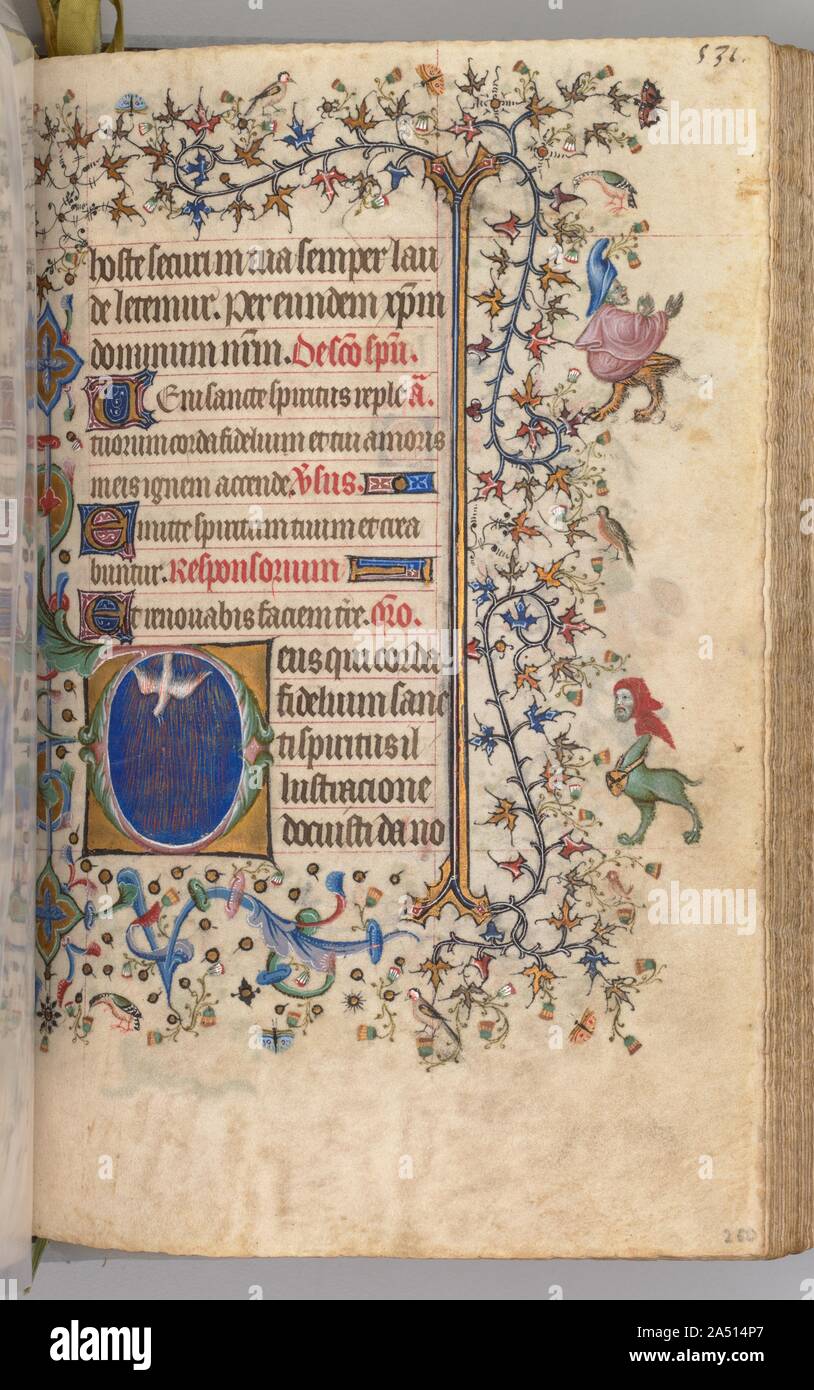 531.
hoste securi in tua semper lau
de letemur. Per eundem xp̄m
dominum nr̄m. De sc̄o sp̄u.
Veni sancte spiritus reple a͞.
tuorum corda fidelium et tui amoris
in eis ignem accende. V̄sus.
Emitte spiritum tuum et crea
buntur. Responsorium
Et renouabis faciem tr̄e. Or̄o.
Deus qui corda
fidelium sanc
ti spiritus il
lustracione
docuisti da no
260
alamy
alamy
Image ID: 2A514P7
www.alamy.com